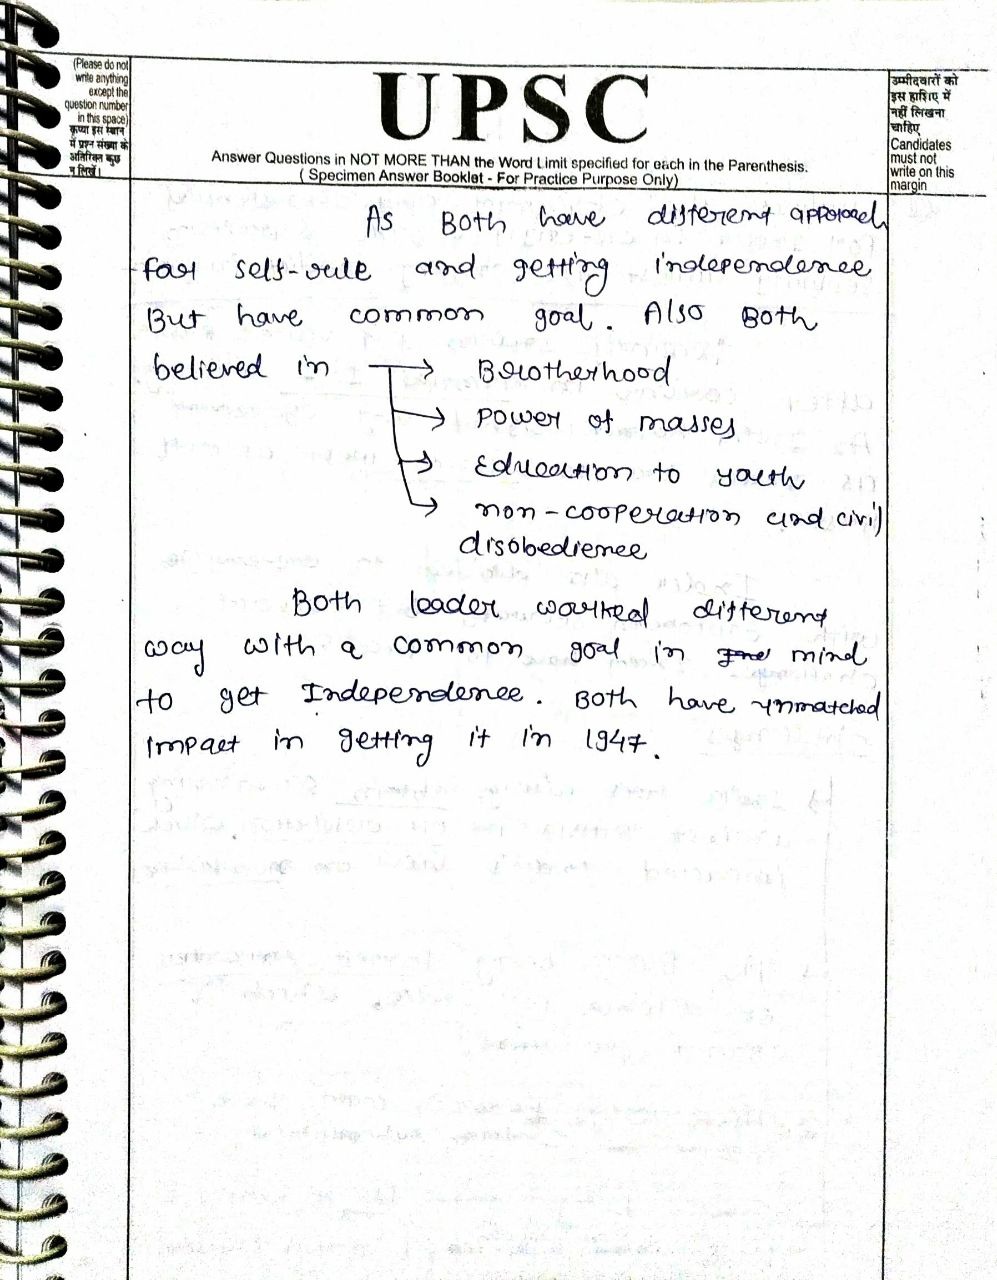 (Please do not
write anything
except the
question number
in this space)
कृपया इस स्थान
में प्रश्न संख्या के
अतिरिक्त कुछ
न लिखें।
UPSC
Answer Questions in NOT MORE THAN the Word Limit specified for each in the Parenthesis.
( Specimen Answer Booklet - For Practice Purpose Only)
उम्मीदवारों को
इस हाशिए में
नहीं लिखना
चाहिए
Candidates
must not
write on this
margin
As Both have different approach
for self-rule and getting independence
But have common goal. Also Both
believed in → Brotherhood
→ Power of masses
→ Education to youth
→ non-cooperation and civil
disobedience
Both leader worked different
way with a common goal in mind
to get Independence. Both have unmatched
impact in getting it in 1947.